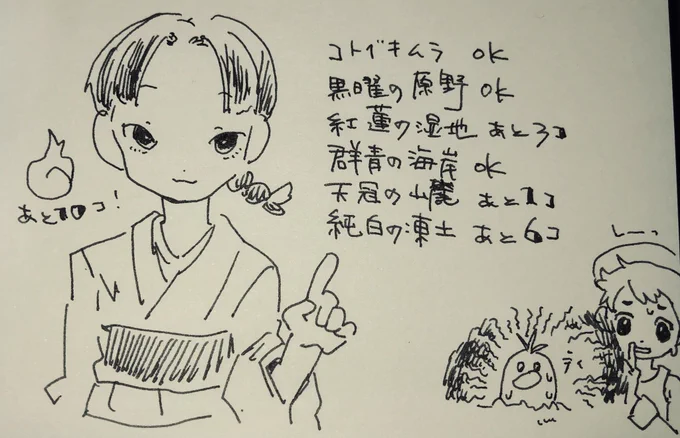 コトブキムラ OK
黒曜の原野 OK
紅蓮の湿地 あと3コ
群青の海岸 OK
天冠の山麓 あと1コ
純白の凍土 あと6コ
あと10コ!
しーっ
ディ